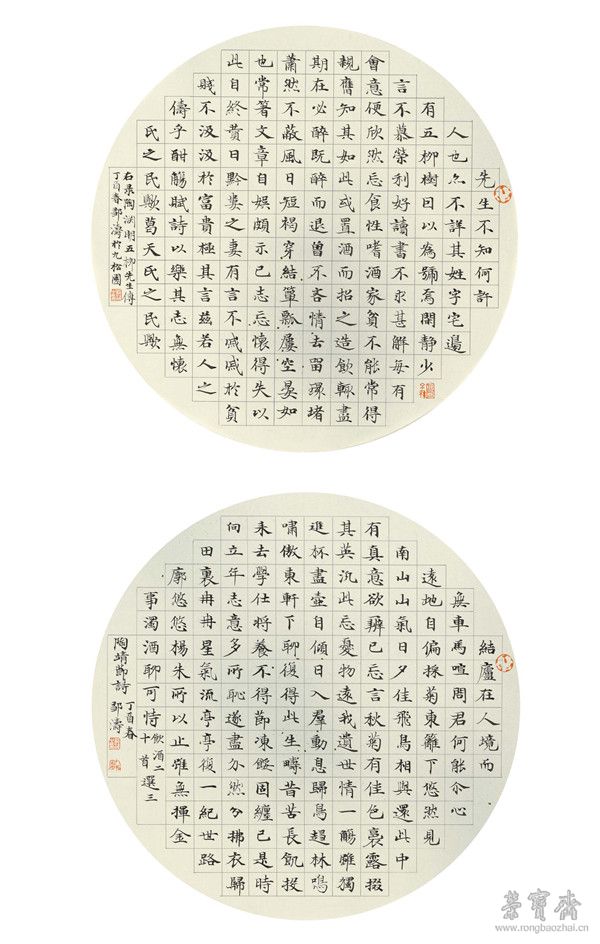 先生不知何許
人也亦不詳其姓字宅邊
有五柳樹因以為號焉閑靜少
言不慕榮利好讀書不求甚解每有
會意便欣然忘食性嗜酒家貧不能常得
親舊知其如此或置酒而招之造飲輒盡
期在必醉既醉而退曾不吝情去留環堵
蕭然不蔽風日短褐穿結簞瓢屢空晏如
也常著文章自娛頗示己志忘懷得失以
此自終贊曰黔婁之妻有言不戚戚於貧
賤不汲汲於富貴極其言茲若人之
儔乎酣觴賦詩以樂其志無懷
氏之民歟葛天氏之民歟
右录陶渊明五柳先生傳
丁酉春鄒濤於九松園
結廬在人境而
無車馬喧問君何能尒心
遠地自偏採菊東籬下悠然見
南山山氣日夕佳飛鳥相與還此中
有真意欲辯已忘言秋菊有佳色裛露掇
其英汎此忘憂物遠我遺世情一觴雖獨
進杯盡壺自傾日入羣動息歸鳥趨林鳴
嘯傲東軒下聊復得此生疇昔苦長飢投
耒去學仕將養不得節凍餒固纏己是時
向立年志意多所恥遂盡介然分拂衣歸
田裏冉冉星氣流亭亭復一紀世路
廓悠悠楊朱所以止雖無揮金
事濁酒聊可恃
飲酒二
十首選三
丁酉春
陶靖節詩 鄒濤
榮寶齋
www.rongbaozhai.cn